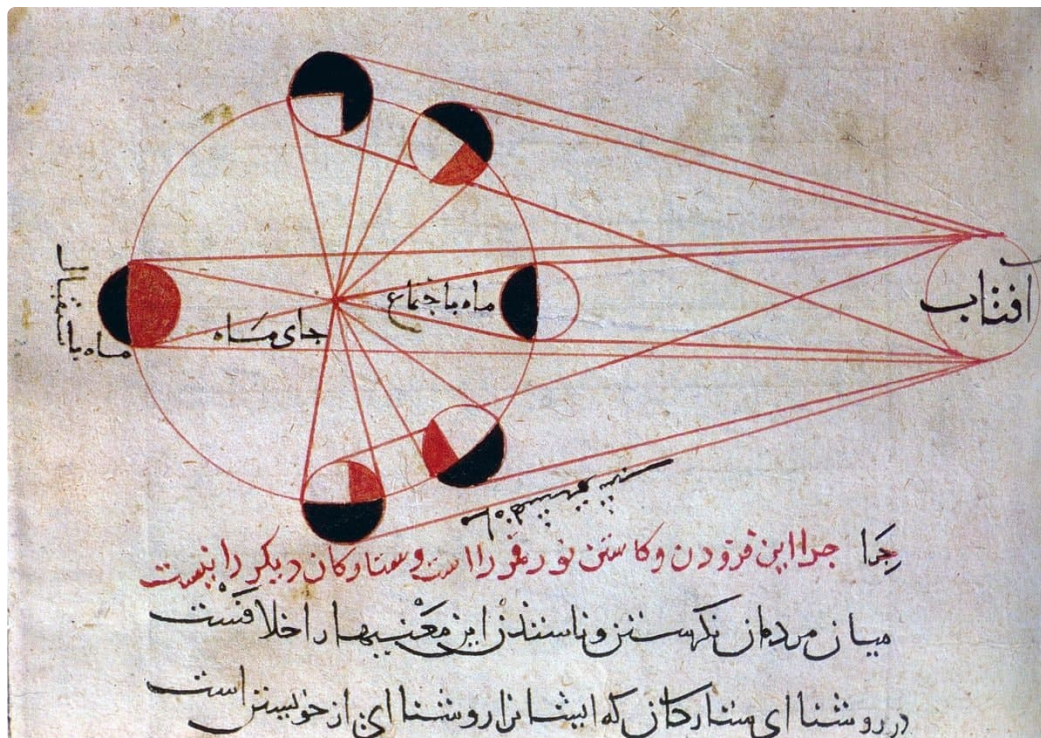 افتاب
ماه باجتماع
جای ماه
ماه باستقبال
چرا این فزودن و کاستن نور قمر را است و ستارکان دیکر را نیست
میان مردمان نکرستن و ناستدن این معنیها را خلافست
در روشنا ای ستارکان که ایشانرا روشنا ای از خویشتن است